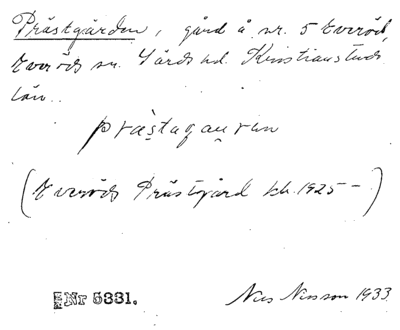 Prästgården, gård å nr. 5 Everöd,
Everöds sn. Gärds hd. Kristianstads
län.
präs̤tagau̯rən
(Everöds Prästgård kb. 1925 – )
Nr 5331.
Nils Nilsson 1933.